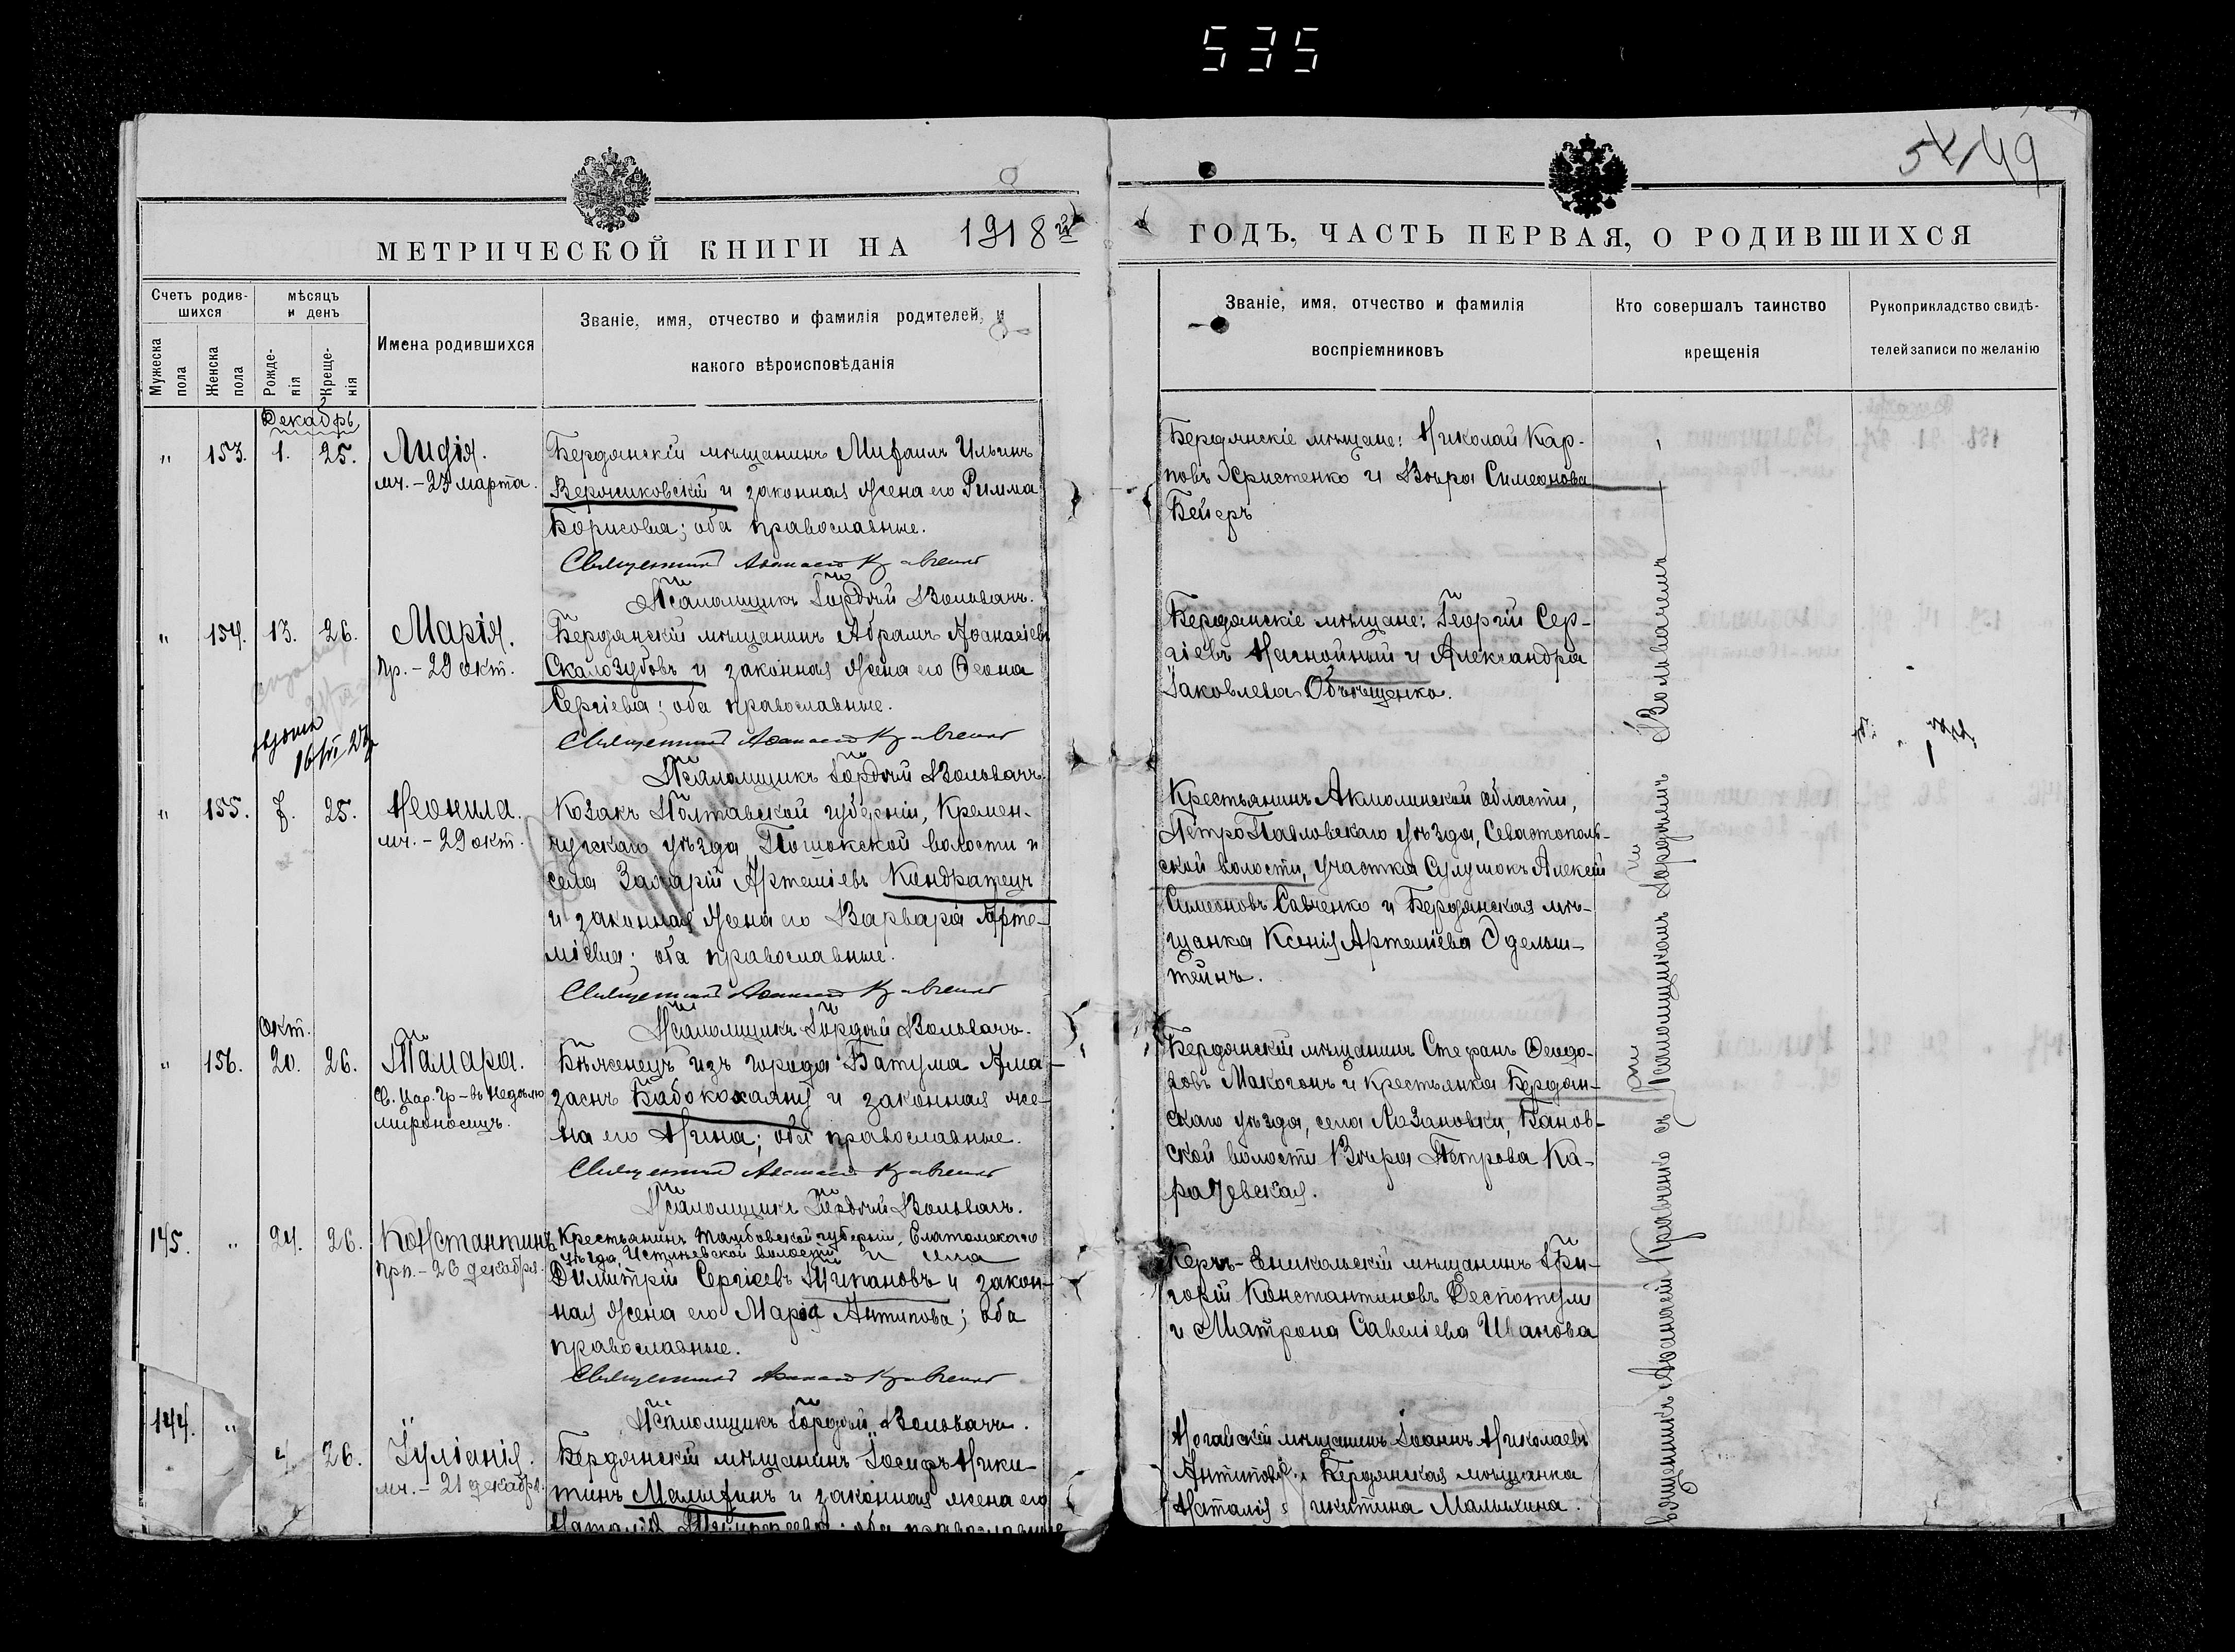 535
54/49
МЕТРИЧЕСКОЙ КНИГИ НА 1918й
ГОДЪ, ЧАСТЬ ПЕРВАЯ, О РОДИВШИХСЯ
Счетъ родив-
шихся
Мужеска
пола
Женска
пола
мѣсяцъ
и день
Рожде-
нія
Креще-
нія
Имена родившихся
Званіе, имя, отчество и фамилія родителей, и
какого вѣроисповѣданія
Званіе, имя, отчество и фамилія
воспріемниковъ
Кто совершалъ таинство
крещенія
Рукоприкладство свидѣ-
телей записи по желанію
Декабрь
" 153. 1. 25.
Лидія.
мч. - 23 марта.
Бердянскій мѣщанинъ Михаилъ Ильинъ
и законная жена его Римма
Борисова; оба православные.
Священникъ Аѳанасій Кравченко
Псаломщикъ Гордѣй Вольвачъ.
Бердянскіе мѣщане: Николай Кар-
повъ Христенко и Вѣра Симеонова
Бейеръ
" 154. 13. 26.
Марія.
пр. - 29 окт.
Бердянскій мѣщанинъ Абрамъ Аѳанасіевъ
Скалозубовъ и законная жена его Ѳеона
Сергіева; оба православные.
Священникъ Аѳанасій Кравченко
Псаломщикъ Гордѣй Вольвачъ.
Бердянскіе мѣщане: Георгій Сер-
гіевъ Нагнойный и Александра
Іаковлева
" 155. 7. 25.
Неонила.
мч. - 29 окт.
Козакъ Полтавской губерніи, Кремен-
чугскаго уѣзда, Потокской волости и
села Захарій Артеміевъ Кондратецъ
и законная жена его Варвара Арте-
міева; оба православные.
Священникъ Аѳанасій Кравченко
Псаломщикъ Гордѣй Вольвачъ.
Крестьянинъ Акмолинской области,
Петропавловскаго уѣзда, Севастополь-
ской волости, участка Сулушокъ Алексій
Симеоновъ Савченко и Бердянская мѣ-
щанка Ксенія Артеміева Эдельш-
тейнъ.
окт.
" 156. 20. 26.
Тамара.
Св. Цар. Гр - въ Недѣлю
мироносицъ.
Бѣженецъ изъ города Батума Ама-
заснъ и законная же-
на его Нина; оба православные.
Священникъ Аѳанасій Кравченко
Псаломщикъ Гордѣй Вольвачъ.
Бердянскій мѣщанинъ Стефанъ Ѳеодо-
ровъ Макогонъ и крестьянка Бердян-
скаго уѣзда, села Лозановки, Банов-
ской волости Вѣра Петрова Ка-
рачевская.
145. " 24. 26.
Константинъ
прп. - 26 декабря.
Крестьянинъ Тамбовской губерніи, Елатомскаго
уѣзда, волости и села
Димитрій Сергіевъ Цыкановъ и закон-
ная жена его Марія Антипова; оба
православные.
Священникъ Аѳанасій Кравченко
Псаломщикъ Гордѣй Вольвачъ.
Керчь-Еникольскій мѣщанинъ Гри-
горій Константиновъ Деспотули
и Матрона Савеліева Иванова
144. " 26.
Іуліанія.
мч. - 21 декабря.
Бердянскій мѣщанинъ Іосифъ Ники-
тинъ Малыхинъ и законная жена его
Наталія оба православные
Ногайскій мѣщанинъ Іоаннъ Николаевъ
Антиповъ и Бердянская мѣщанка
Наталія Никитина Малыхина.
Священникъ Аѳанасій Кравченко съ Псаломщикомъ Гордѣемъ Вольвачемъ